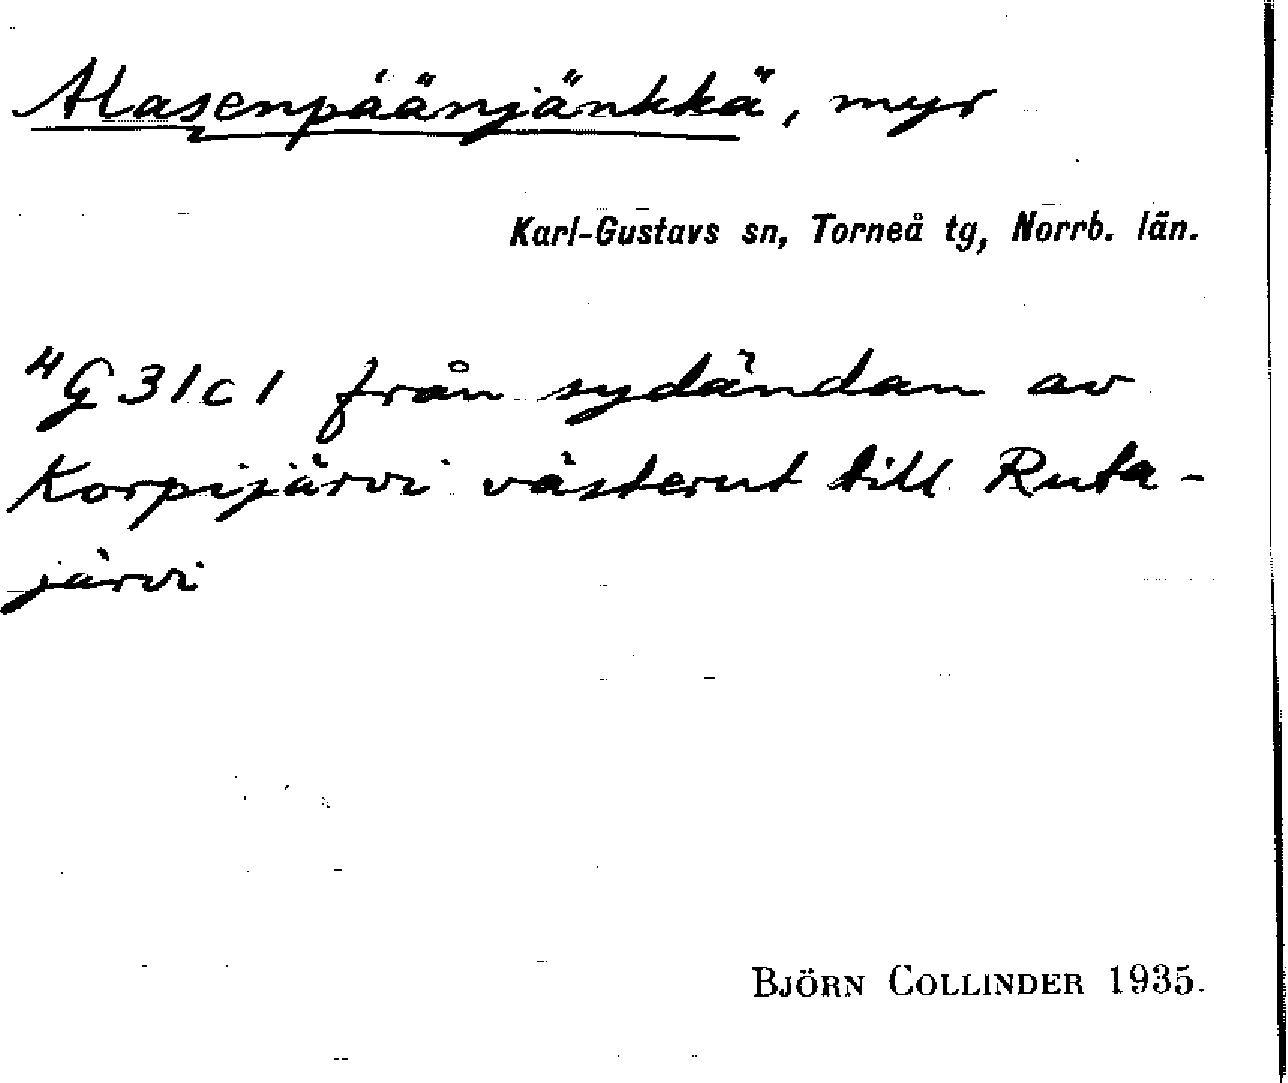 Alasenpäänjänkkä, myr
Karl-Gustavs sn, Torneå tg, Norrb. län.
4G31c1 från sydändan av
Korpijärvi västerut till Ruta-
järvi
BJÖRN COLLINDER 1935.